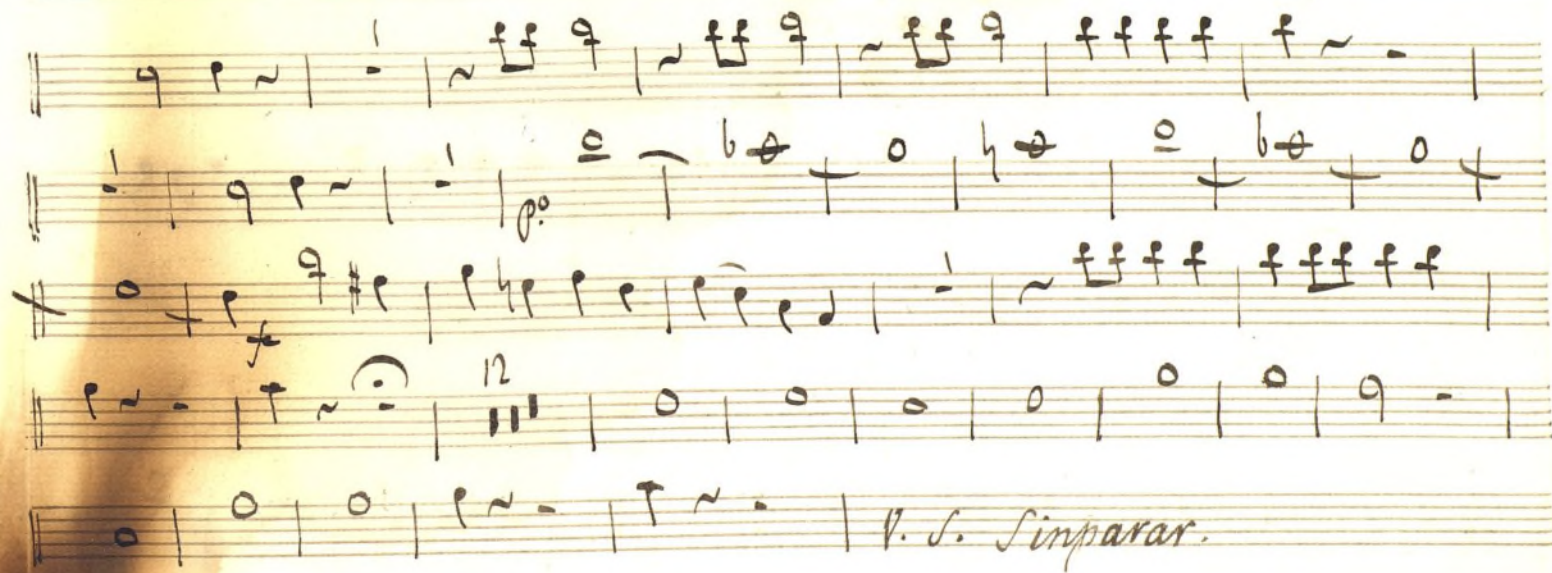 1
1 1
p.o
f 1
12
V. S. Sinparar.